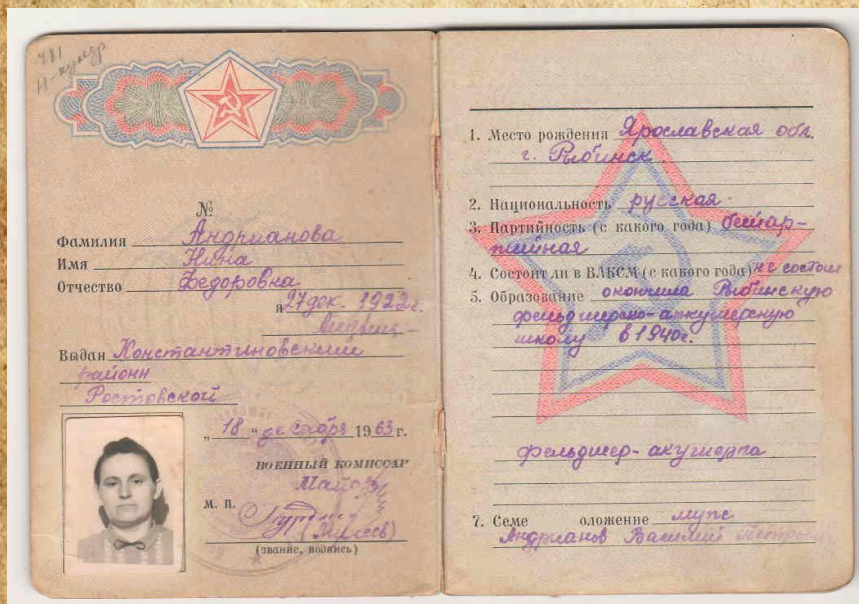 №
Фамилия Андрианова
Имя Нина
Отчество Федоровна
27 дек. 1922г.
Выдан Константиновский
районн
Ростовской
„18" декабря 1963 г.
ВОЕННЫЙ КОМИССАР
Майор
М. П.
(звание, подпись)
1. Место рождения Ярославская обл.
г. Рыбинск.
2. Национальность русская.
3. Партийность (с какого года) беспар-
тийная
4. Состоит ли в ВЛКСМ (с какого года) не состоит
5. Образование окончила Рыбинскую
фельдшерско-аккушерскую
школу в 1940г.
фельдшер-акушерка
7. Семе оложение муж
Андрианов Василий Петрович